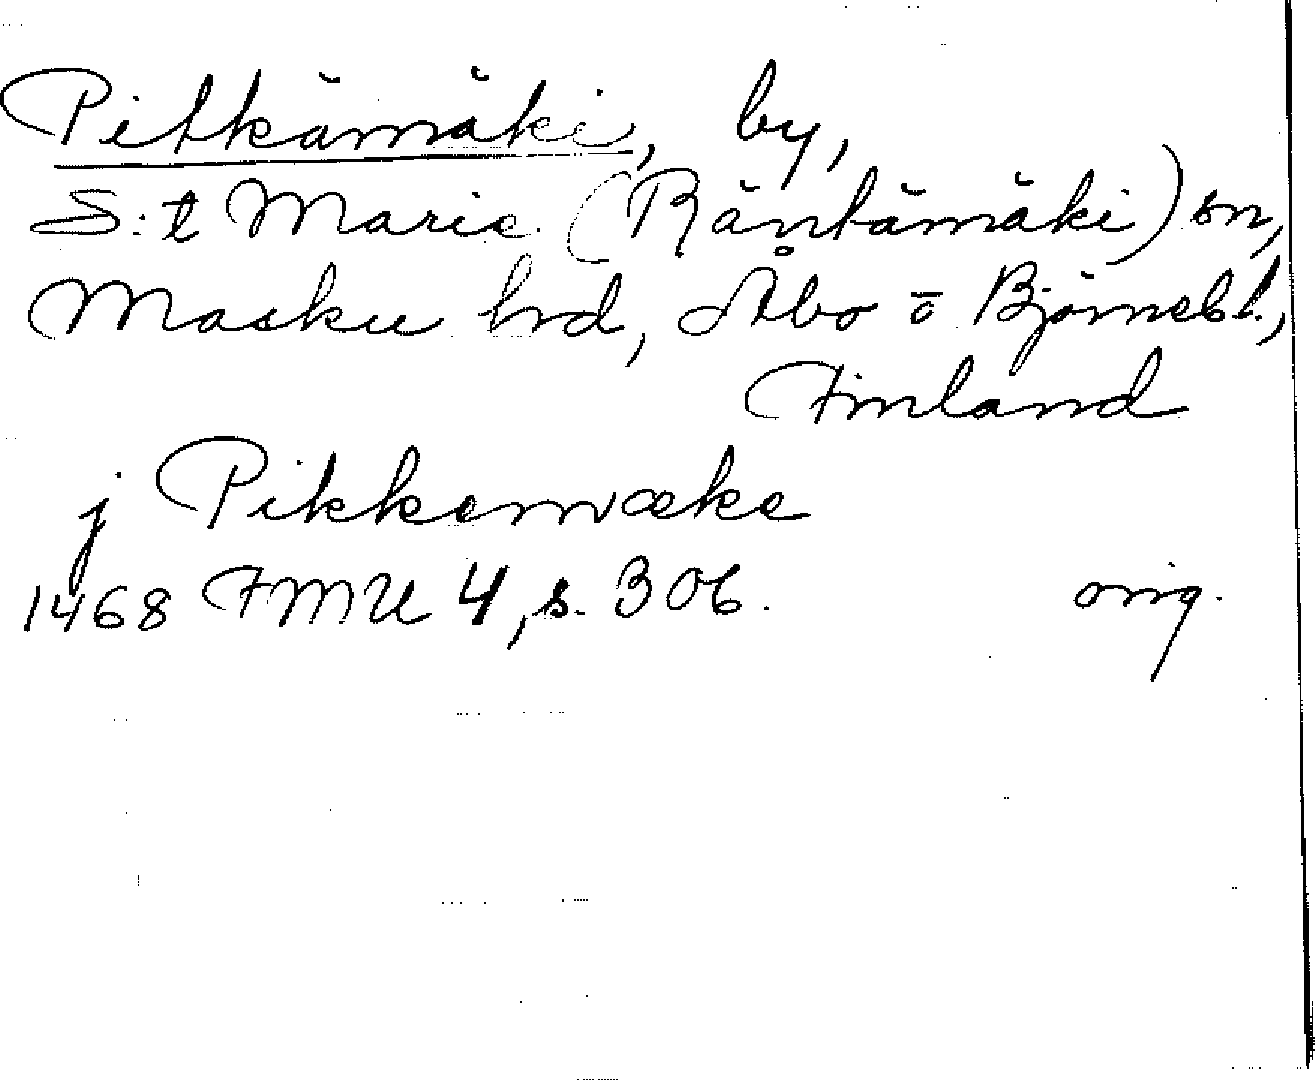 Pitkämäki, by,
S:t Marie (Räntämäki) sn,
Masku hd, Åbo o Björnebl.,
Finland
j Pikkemæke
1468 FMU 4, s. 306. orig.